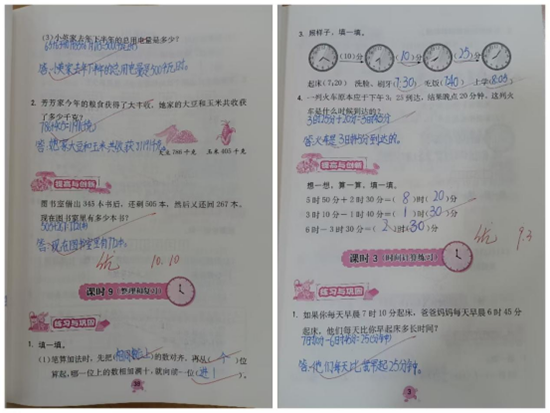 (3)小英家去年下半年的总用电量是多少?
2. 芳芳家今年的粮食获得了大丰收,她家的大豆和玉米共收获
了多少千克?
大豆 786 千克
玉米 405 千克
提高与创新
图书室借出 345 本书后,还剩 505 本,然后又还回 267 本。
现在图书室里有多少本书?
优 10.10
课时 9(整理和复习)
练习与巩固
1. 填一填。
(1)笔算加法时,先把(相同数位上)的数对齐,再从(个)位
算起,哪一位上的数相加满十,就向前一位(进1)。
3. 照样子,填一填。
(10)分 (10)分 (25)分
起床(7:20) 洗脸、刷牙(7:30) 吃饭(7:40) 上学(8:05)
4. 一列火车原本应于下午 3:25 到达,结果晚点 20 分钟,这列火
车是什么时候到达的?
提高与创新
想一想,算一算,填一填。
5 时 50 分+2 时 30 分=(8)时(20)分
3 时 10 分-1 时 40 分=(1)时(30)分
6 时-3 时 30 分=(2)时(30)分
优 9.3
课时 3(时间计算练习)
练习与巩固
1. 如果你每天早晨 7 时 10 分起床,爸爸妈妈每天早晨 6 时 45 分
起床,他们每天比你早起床多长时间?
7时10分-6时45分=25(分钟)
答:他们每天比我早起25分钟。
3